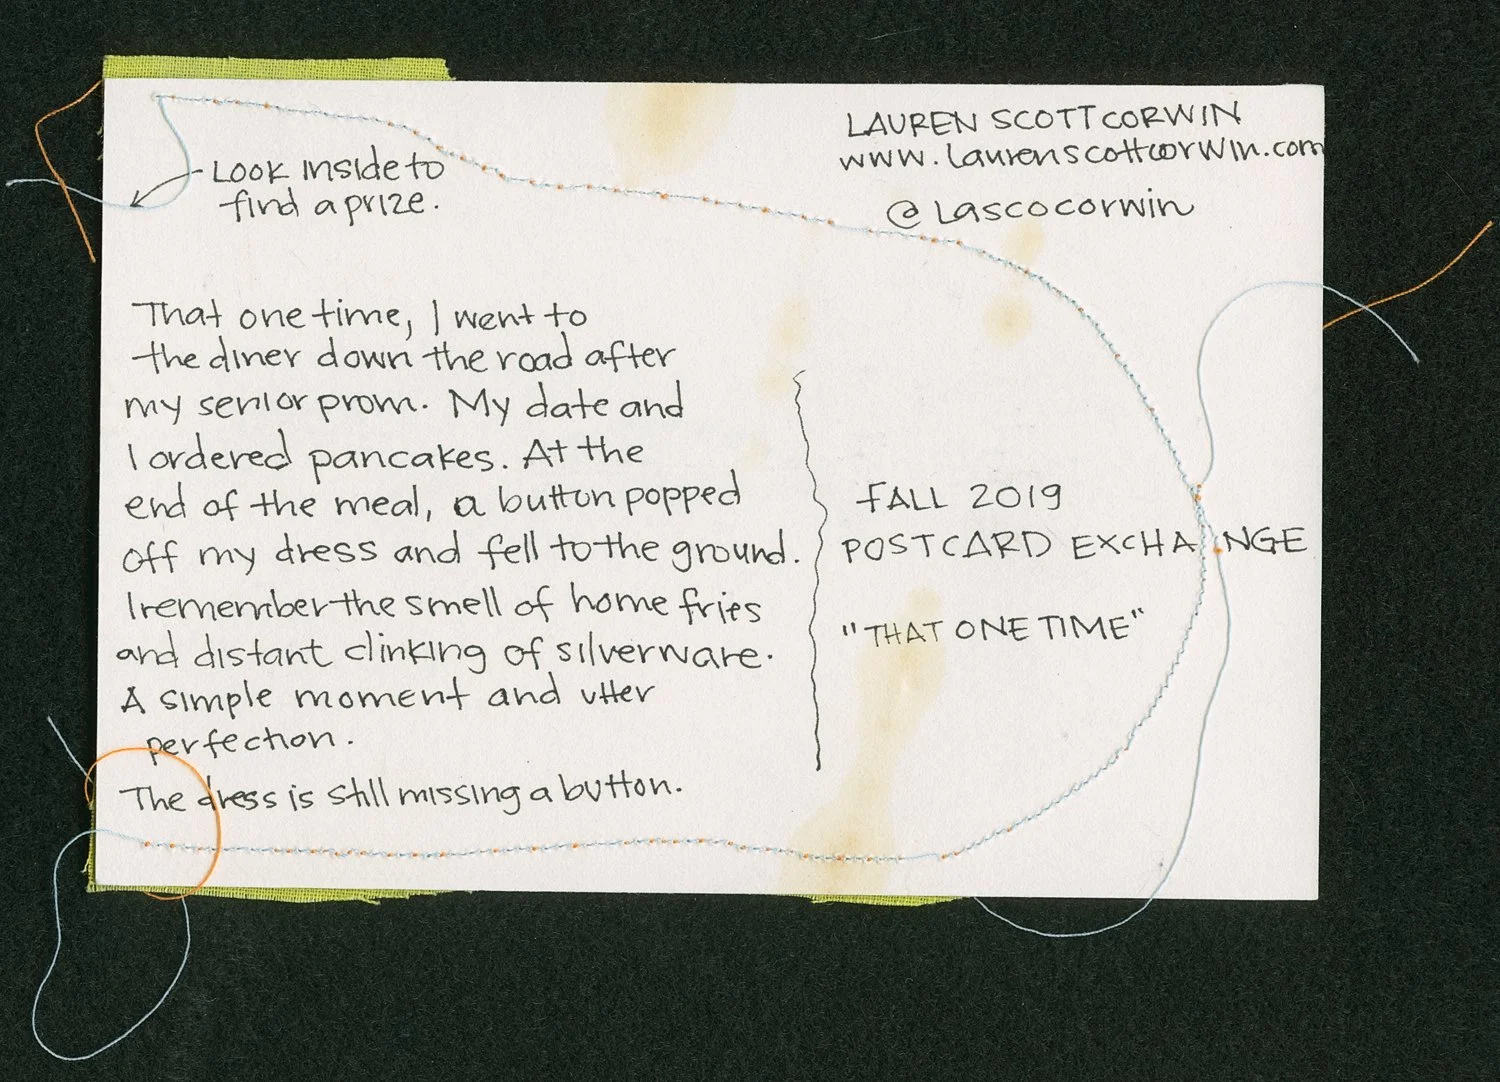 LAUREN SCOTT CORWIN
www.laurenscottcorwin.com
@lascocorwin
Look inside to
find a prize.
That one time, I went to
the diner down the road after
my senior prom. My date and
I ordered pancakes. At the
end of the meal, a button popped
off my dress and fell to the ground.
I remember the smell of home fries
and distant clinking of silverware.
A simple moment and utter
perfection.
The dress is still missing a button.
FALL 2019
POSTCARD EXCHANGE
"THAT ONE TIME"